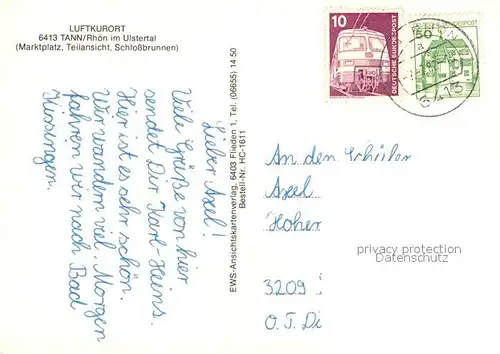 LUFTKURORT
6413 TANN/Rhön im Ulstertal
(Marktplatz, Teilansicht, Schloßbrunnen)
Lieber Axel!
Viele Grüße von hier
sendet Dir Karl-Heins.
Hier ist es sehr schön.
Wir wandern viel. Morgen
fahren wir nach Bad
Kissingen.
EWS-Ansichtskartenverlag, 6403 Flieden 1, Tel. (06655) 14 50
Bestell-Nr. HC-1611
10
DEUTSCHE BUNDESPOST
50
An den Schüler
Axel
Hoher
privacy protection
3209
O.T. Di